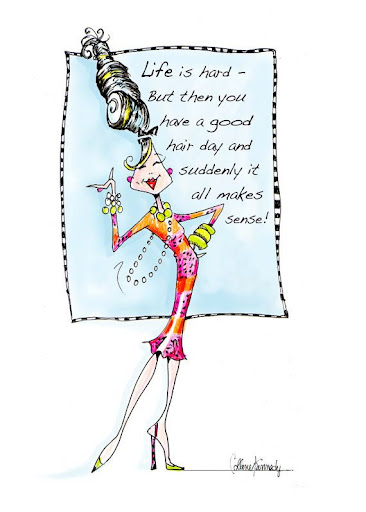 Life is hard -
But then you
have a good
hair day and
suddenly it
all makes
sense!
Colleen Kennedy